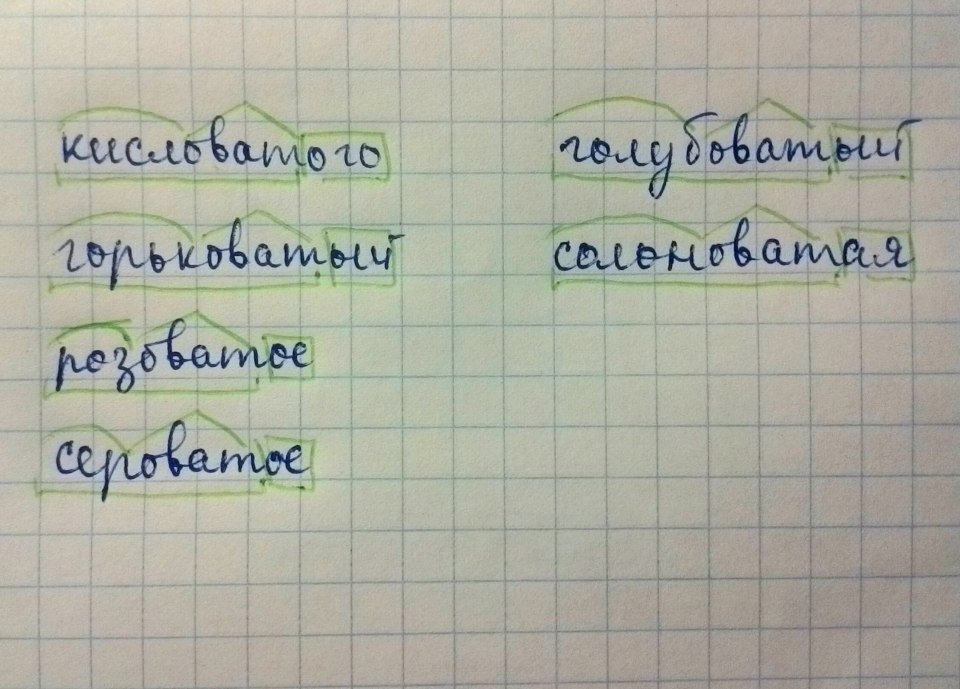 кисловатого
горьковатый
розоватое
сероватое
голубоватый
солоноватая